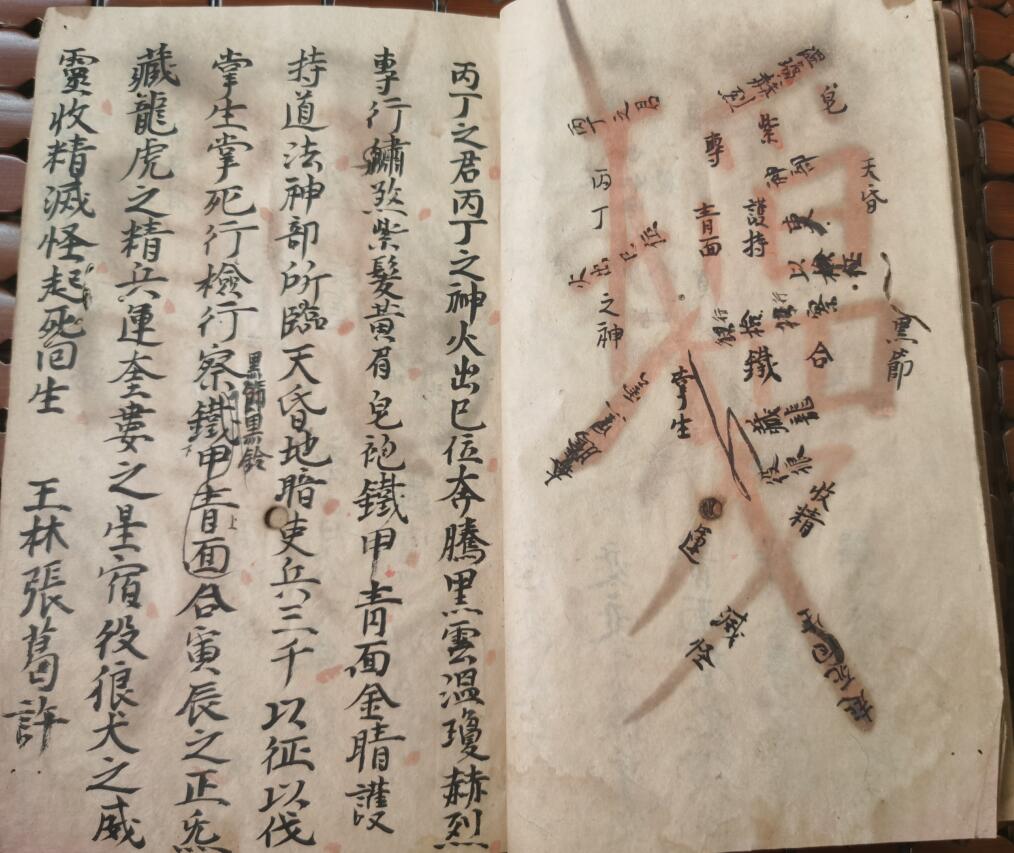 黑節
天昏
皂
溫瓊赫烈
紫
專
青面
護持
行檢
行察
合
鐵
藏龍
役狼
收精
掌生
運
滅怪
丙丁之君
丙丁之神
火出巳位
丙丁之君丙丁之神火出巳位奔騰黑雲溫瓊赫烈
專行煞紫髮黃眉皂袍鐵甲青面金睛護
持道法神部所臨天昏地暗吏兵三千以征以伐
黑節黑鈴
掌生掌死行檢行察鐵甲青面合寅辰之正炁
上
藏龍虎之精兵運奎婁之星宿役狼犬之威
靈收精滅怪起死回生 王林張葛許